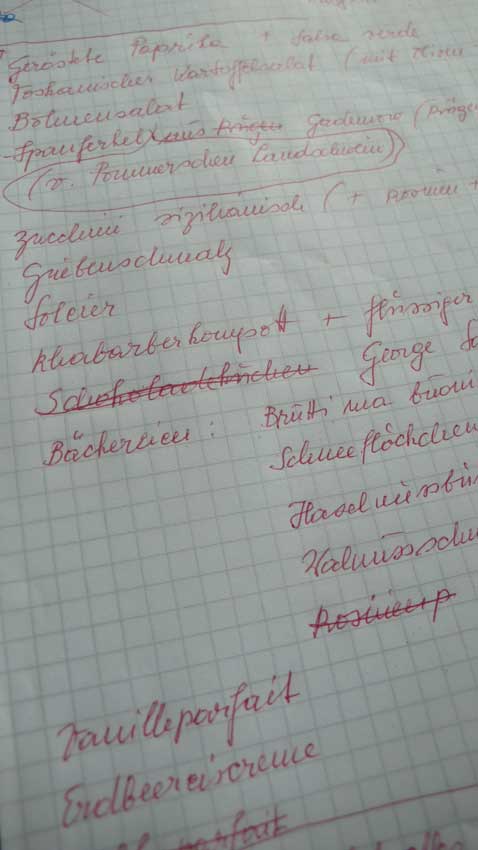 Geröstete Paprika + Salsa verde
Toskanischer Kartoffelsalat (mit
Bohnensalat
- Spanferkel aus
(v. Pommerschen Landschwein)
Zucchini sizilianisch (+ Rosinen +
Griebenschmalz
Soleier
Rhabarberkompott + flüssiger
Schokoladekuchen George
Bäckereien: Brutti ma buoni
Schneeflöckchen
Haselnuss
Walnuss
Rosinen
Vanilleparfait
Erdbeereiscreme
parfait